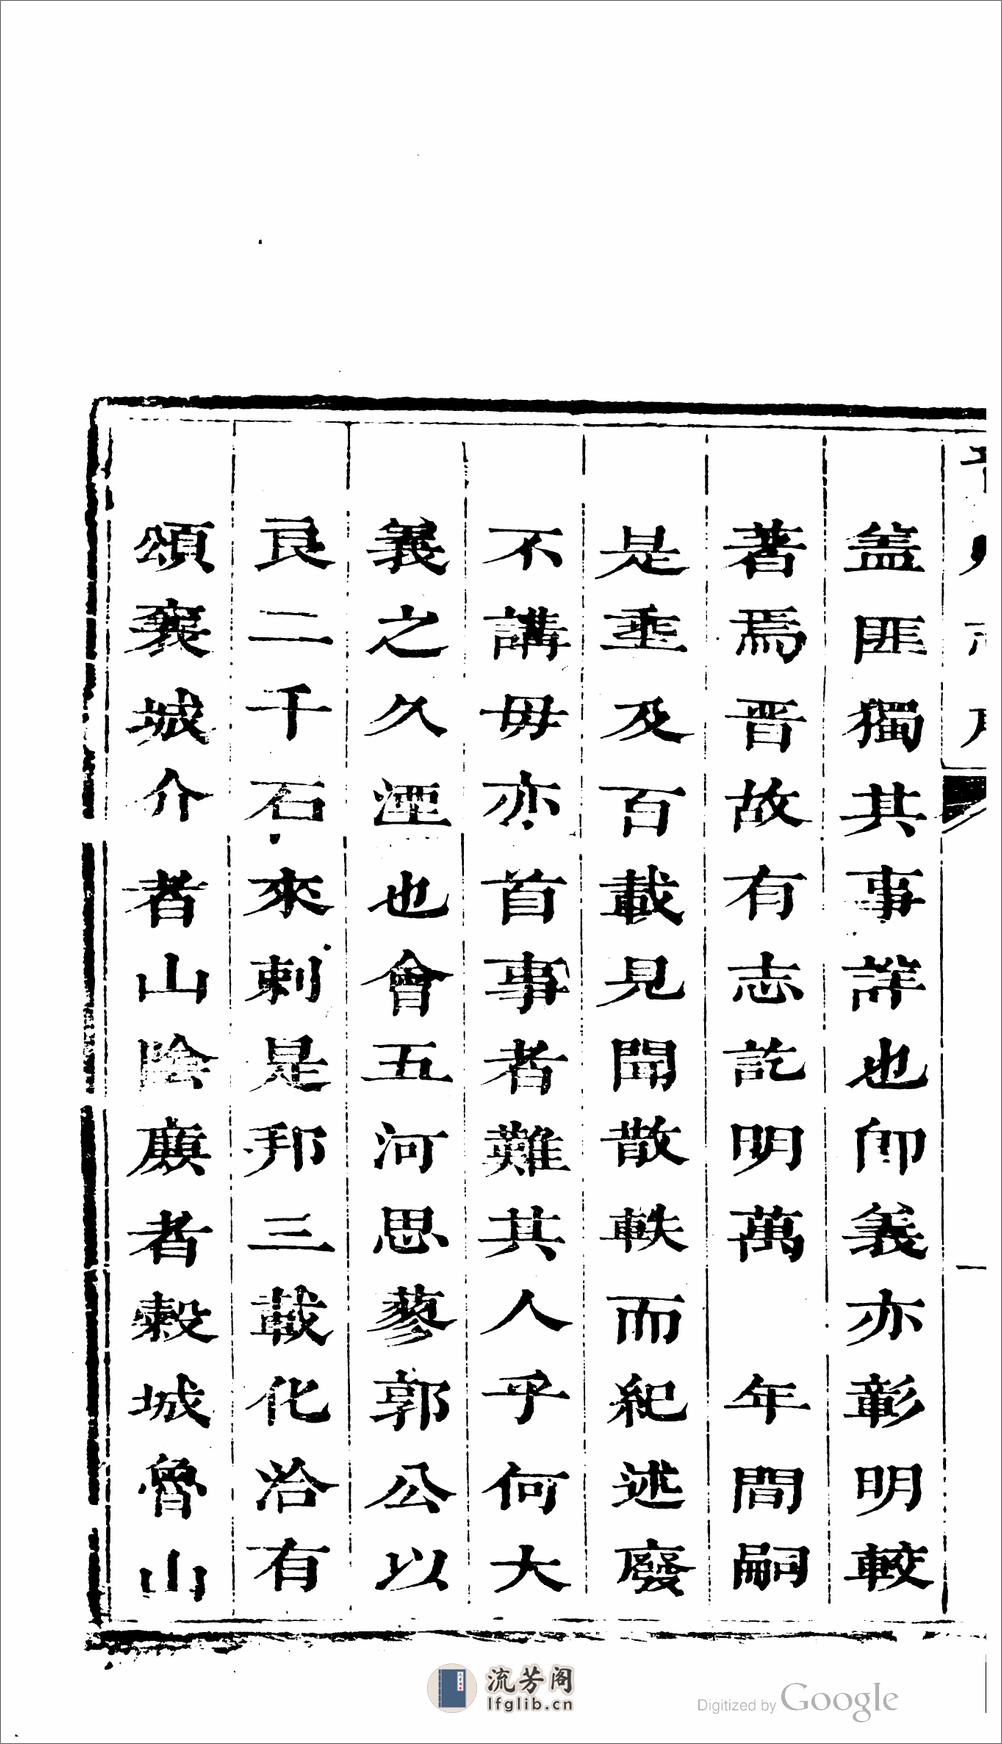 葢匪獨其事詳也卽義亦彰明較
著焉晋故有志訖明萬　年間嗣
是埀及百載見聞散軼而紀述廢
不講毋亦首事者難其人乎何大
義之久湮也會五河思蓼郭公以
良二千石來刺是邦三載化洽有
頌襄城介者山陰賡者穀城魯山
流芳阁
lfglib.cn
Digitized by Google